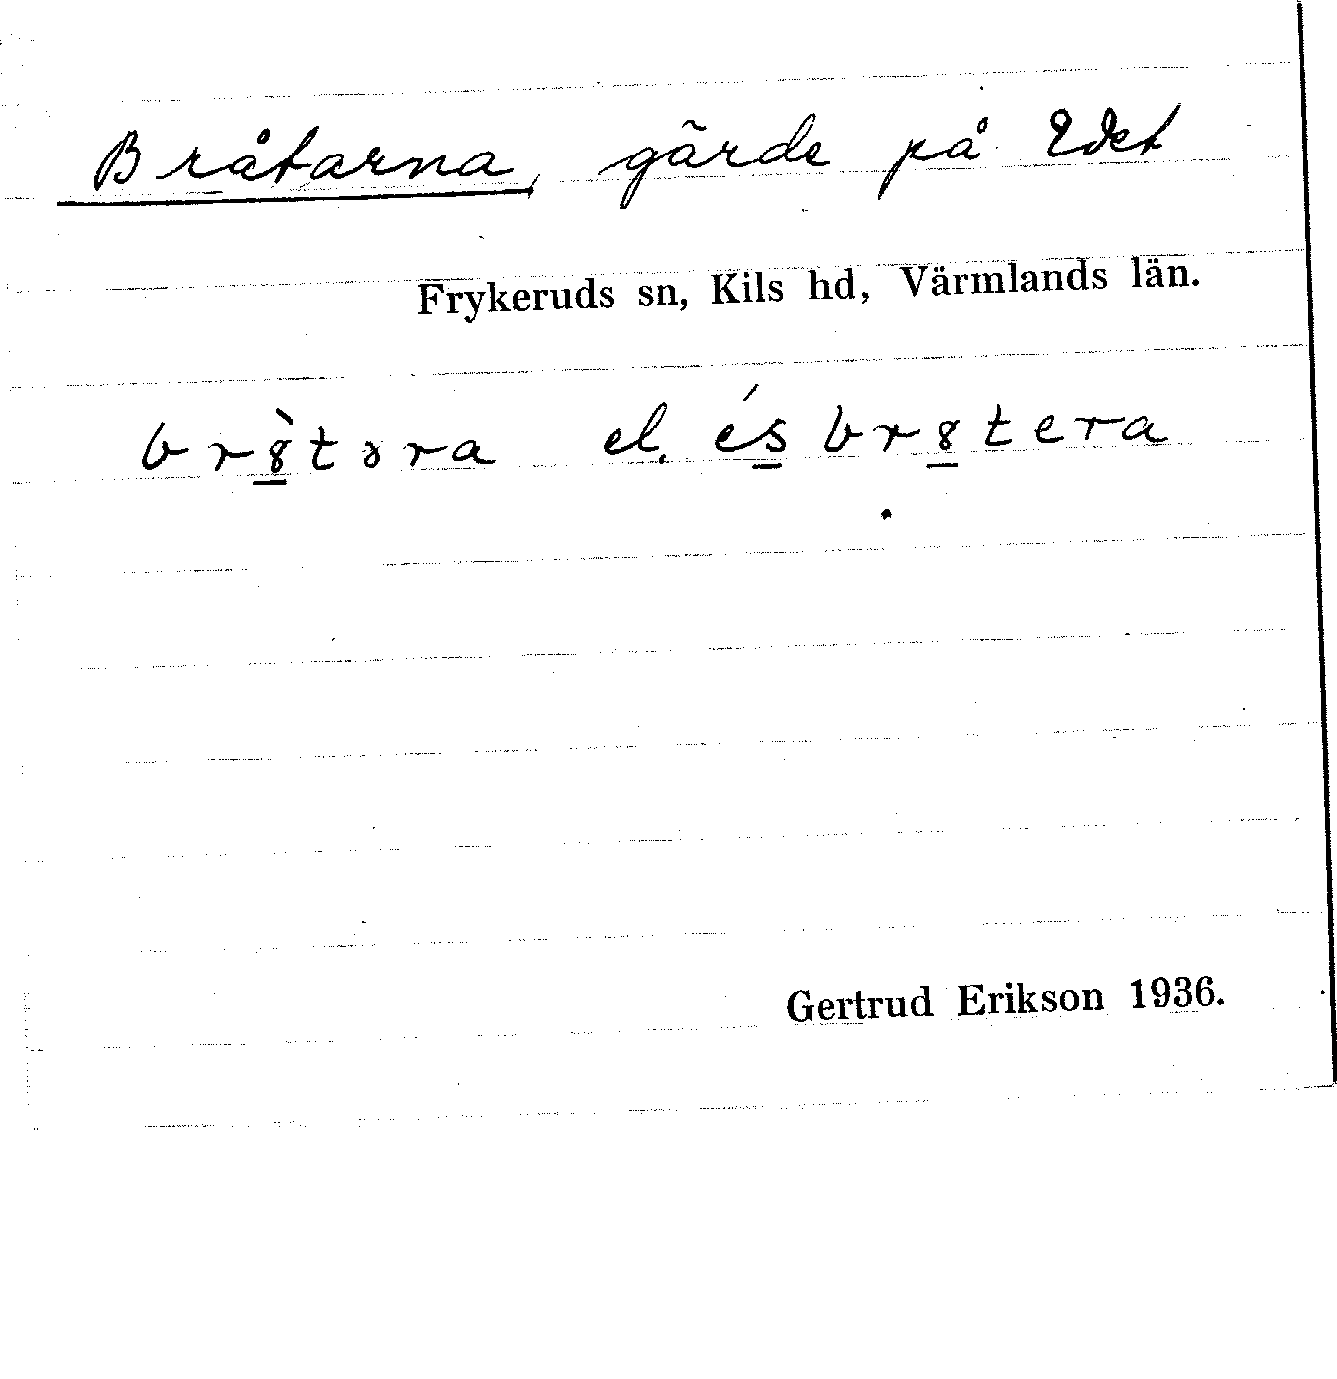 Bråtarna, gärde på Edet
Frykeruds sn, Kils hd, Värmlands län.
br8̠̀təra el. és̠br8̠tera
Gertrud Erikson 1936.